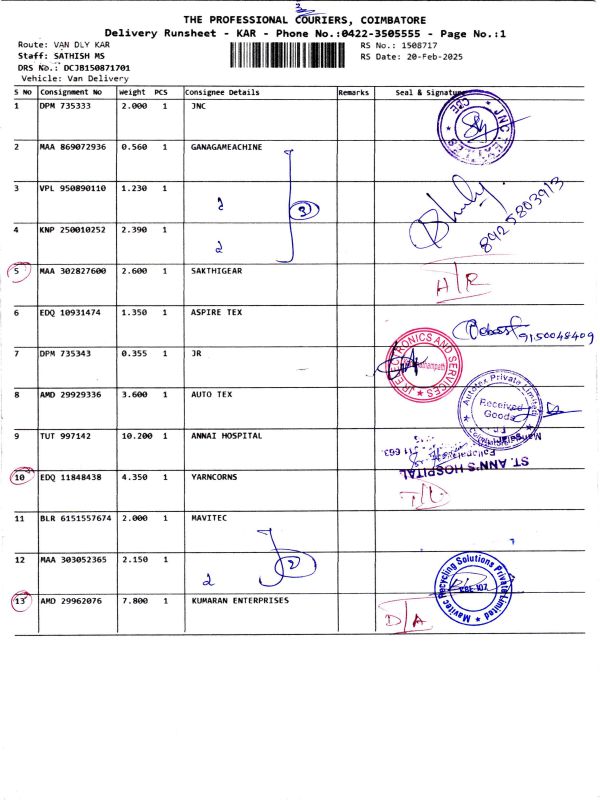 THE PROFESSIONAL COURIERS, COIMBATORE
Delivery Runsheet - KAR - Phone No.:0422-3505555 - Page No.:1
Route: VAN DLY KAR
RS No.: 1508717
Staff: SATHISH MS
RS Date: 20-Feb-2025
DRS No.: DCJB150871701
Vehicle: Van Delivery
S No Consignment No Weight PCS Consignee Details Remarks Seal & Signature
1 DPM 735333 2.000 1 JNC
2 MAA 869072936 0.560 1 GANAGAMEACHINE
3 VPL 950890110 1.230 1
3
8925803913
4 KNP 250010252 2.390 1
5 MAA 302827600 2.600 1 SAKTHIGEAR
6 EDQ 10931474 1.350 1 ASPIRE TEX
9150048409
7 DPM 735343 0.355 1 JR
JR ELECTRONICS AND SERVICES
8 AMD 29929336 3.600 1 AUTO TEX
Autotex Private Limited
Received
Goods
9 TUT 997142 10.200 1 ANNAI HOSPITAL
ST. ANN'S HOSPITAL
10 EDQ 11848438 4.350 1 YARNCORNS
11 BLR 6151557674 2.000 1 MAVITEC
12 MAA 303052365 2.150 1
2
Mavitec Recycling Solutions Private Limited
13 AMD 29962076 7.800 1 KUMARAN ENTERPRISES
D/A